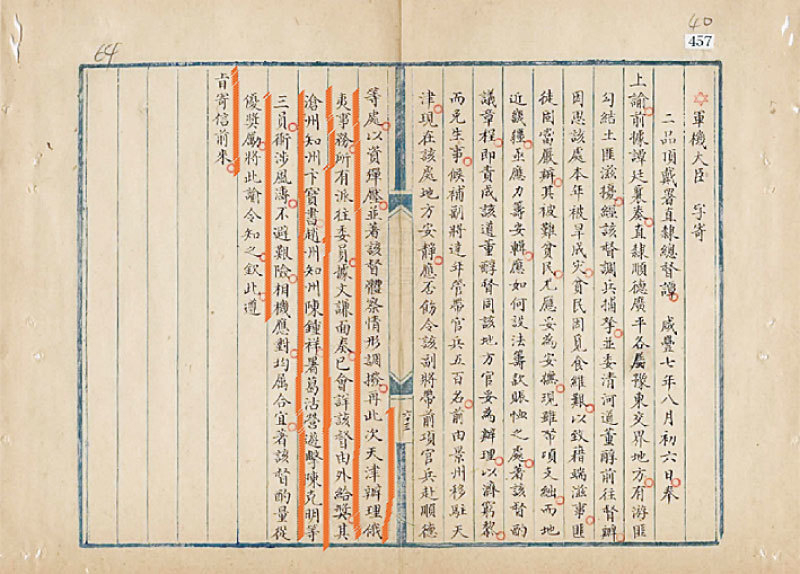 40
457
64
軍機大臣 字寄
二品頂戴署直隸總督譚 咸豐七年八月初六日奉
上諭前據譚廷襄奏直隸順德廣平各屬豫東交界地方有游匪
勾結土匪滋擾經該督調兵捕拏並委清河道董醇前往督辦
因思該處本年被旱成灾貧民困覓食維艱以致藉端滋事匪
徒固當嚴辦其被難貧民尤應妥為安撫現雖帑項支絀而地
近畿疆亟應力籌安輯應如何設法籌款賑恤之處著該督酌
議章程即責成該道董醇督同該地方官妥為辦理以濟窮黎
而免生事候補副將達年管帶官兵五百名前由景州移駐天
津現在該處地方安靜應否飭令該副將帶前項官兵赴順德
等處以資彈壓並著該督體察情形調撥再此次天津辦理俄
夷事務所有派往委員據文謙面奏已會詳該督由外給獎其
滄州知州卞寶書趙州知州陳鍾祥署葛沽營遊擊陳克明等
三員衝涉風濤不避艱險相機應對均屬合宜著該督酌量從
優獎勵將此諭令知之欽此遵
旨寄信前來